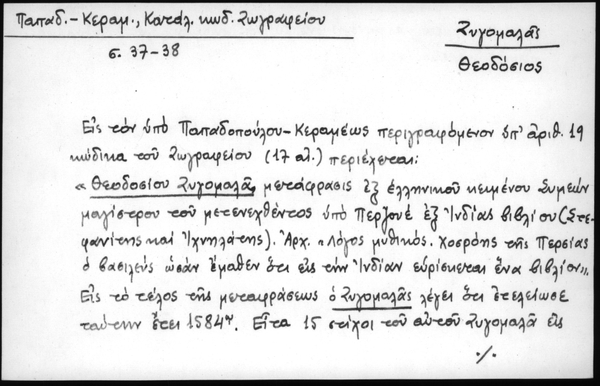 Παπαδ.-Κεραμ., Κατάλ. κωδ. Ζωγραφείου
σ. 37-38
Ζυγομαλᾶς
Θεοδόσιος
Εἰς τὸν ὑπὸ Παπαδοπούλου-Κεραμέως περιγραφόμενον ὑπ' ἀριθ. 19
κώδικα τοῦ Ζωγραφείου (17 αἰ.) περιέχεται:
« Θεοδοσίου Ζυγομαλᾶ, μετάφρασις ἐξ ἑλληνικοῦ κειμένου Συμεὼν
μαγίστρου τοῦ μετενεχθέντος ὑπὸ Περζουὲ ἐξ Ἰνδίας βιβλίου (Στε-
φανίτης καὶ Ἰχνηλάτης). Ἀρχ. « Λόγος μυθικός. Χοσρόης τῆς Περσίας
ὁ βασιλεὺς ὡσὰν ἔμαθεν ὅτι εἰς τὴν Ἰνδίαν εὑρίσκεται ἕνα βιβλίον».
Εἰς τὸ τέλος τῆς μεταφράσεως ὁ Ζυγομαλᾶς λέγει ὅτι ἐτελείωσε
ταύτην ἔτει 1584ῳ. Εἶτα 15 στίχοι τοῦ αὐτοῦ Ζυγομαλᾶ εἰς
./.